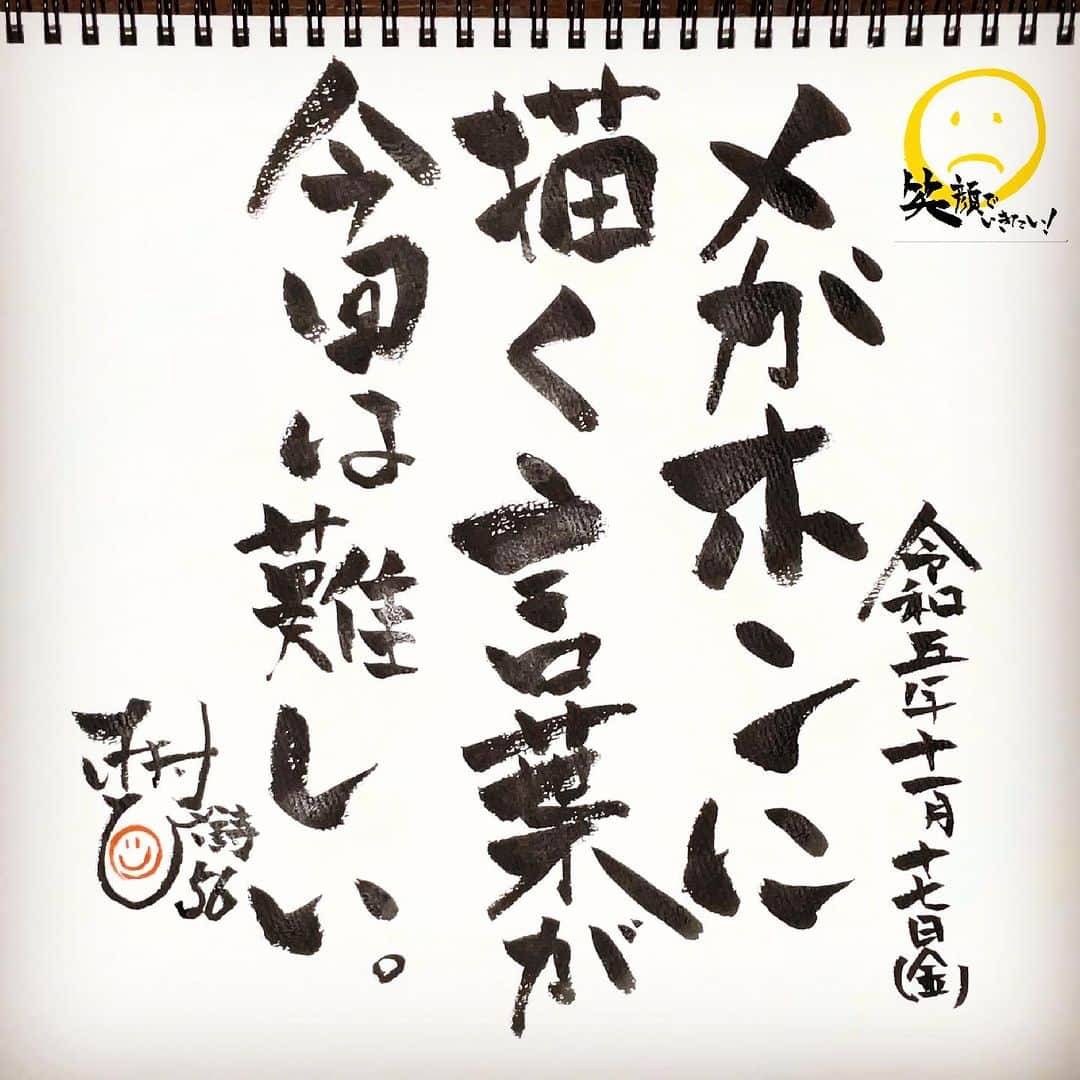 笑顔で
いきたい!
令和五年十一月十七日(金)
メガホンに
描く言葉が
今回は難しい。
56